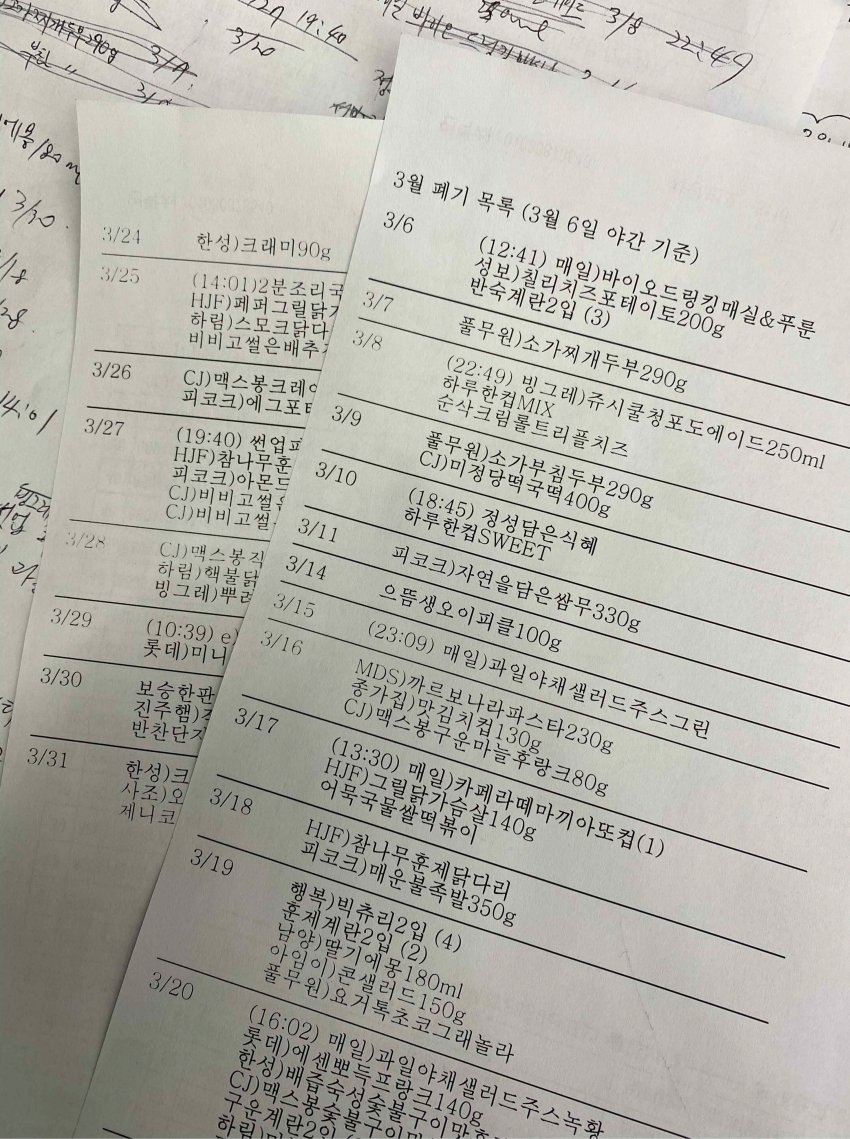 19:40
3/20
3/8 22:49
290g
3/20
3/24 한성)크래미90g
3/25 (14:01)2분조리국
HJF)페퍼그릴닭가
하림)스모크닭다
비비고썰은배추
3/26 CJ)맥스봉크레이
피코크)에그포테
3/27 (19:40) 썬업과
HJF)참나무훈
피코크)아몬드
CJ)비비고썰은
CJ)비비고썰
3/28 CJ)맥스봉직
하림)핵불닭
빙그레)뿌려
3/29 (10:39) e)
롯데)미니
3/30 보승한판
진주햄)
반찬단지
3/31 한성)크
사조)오
제니코
3월 폐기 목록 (3월 6일 야간 기준)
3/6 (12:41) 매일)바이오드링킹매실&푸룬
성보)칠리치즈포테이토200g
반숙계란2입 (3)
3/7 풀무원)소가찌개두부290g
3/8 (22:49) 빙그레)쥬시쿨청포도에이드250ml
하루한컵MIX
순삭크림롤트리플치즈
3/9 풀무원)소가부침두부290g
CJ)미정당떡국떡400g
3/10 (18:45) 정성담은식혜
하루한컵SWEET
3/11 피코크)자연을담은쌈무330g
3/14 으뜸생오이피클100g
3/15 (23:09) 매일)과일야채샐러드주스그린
3/16 MDS)까르보나라파스타230g
종가집)맛김치컵130g
CJ)맥스봉구운마늘후랑크80g
3/17 (13:30) 매일)카페라떼마끼아또컵(1)
HJF)그릴닭가슴살140g
어묵국물쌀떡볶이
3/18 HJF)참나무훈제닭다리
피코크)매운불족발350g
3/19 행복)빅츄리2입 (4)
훈제계란2입 (2)
남양)딸기에몽180ml
아임이)콘샐러드150g
풀무원)요거톡초코그래놀라
3/20 (16:02) 매일)과일야채샐러드주스녹황
롯데)에센뽀득프랑크140g
한성)배즙숙성숯불구이맛
CJ)맥스봉숯불구이맛
구운계란2입
하림)